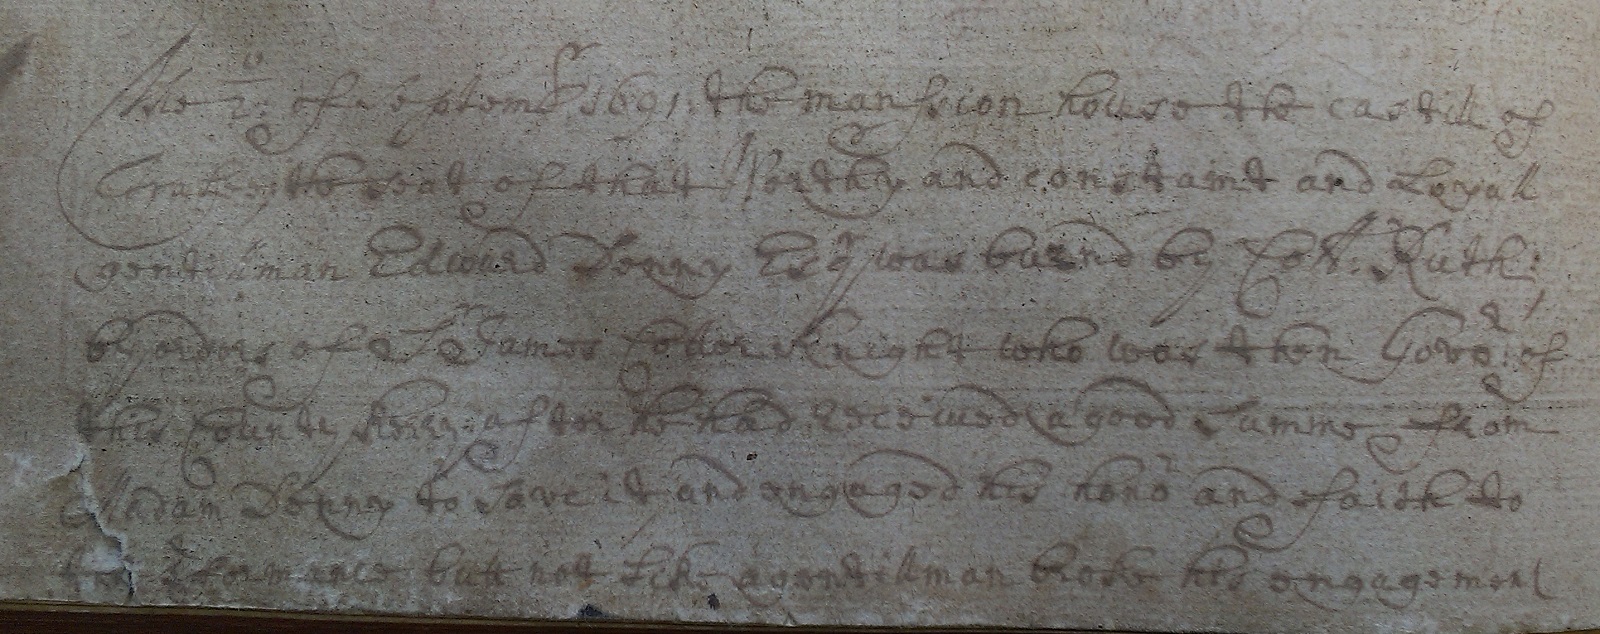 The 2: of Septemr 1691: the manssion house the castill of
Tralee, the seat of that Worthy and constamt and Loyall
gentillman Edward Denny Esqr was burnd by Coll: Ruth:
by orders of Sr James Cotter knight who was then Govr: of
this County Kerry: after he had receiued a good Summe from
Madam Denny to Save it and engaged his honor and faith to
performance butt not Like a gentillman broke his engagement